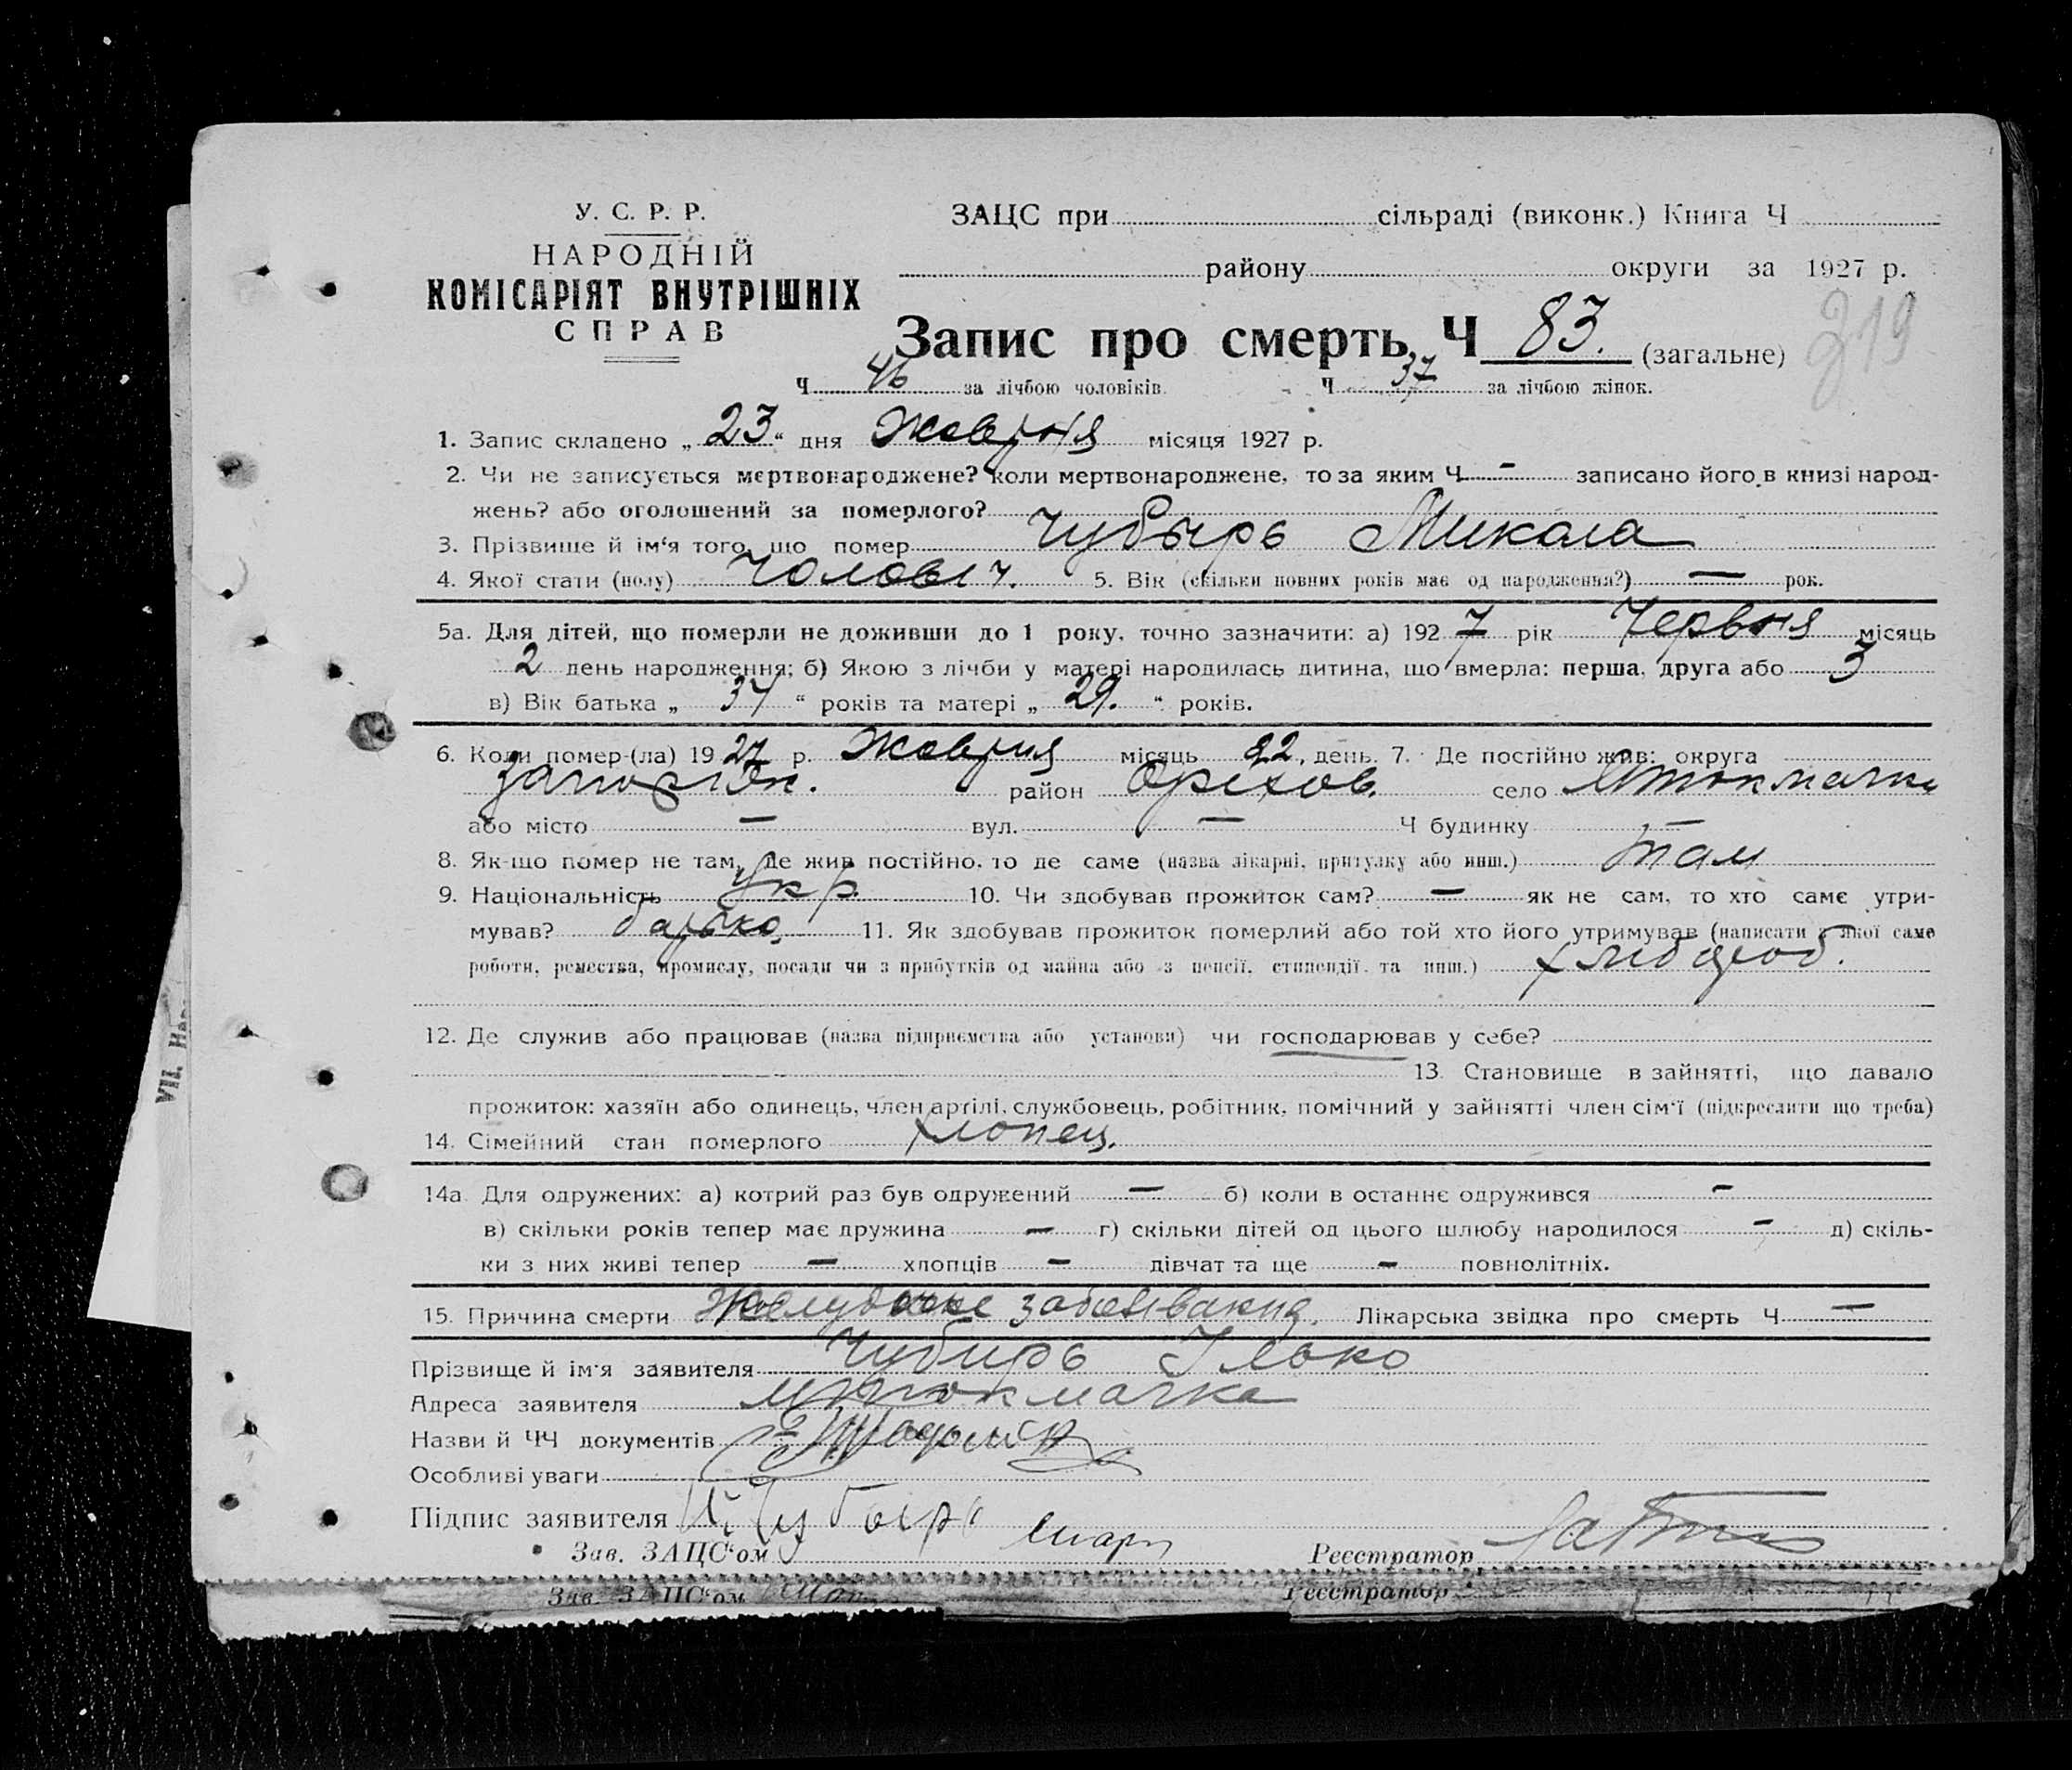 У. С. Р. Р.
НАРОДНІЙ
КОМІСАРІЯТ ВНУТРІШНІХ
СПРАВ
ЗАЦС при сільраді (виконк.) Книга Ч
району округи за 1927 р.
Запис про смерть Ч 83. (загальне)
219
Ч 46 за лічбою чоловіків. Ч 37 за лічбою жінок.
1. Запис складено „ 23 “ дня Жовтня місяця 1927 р.
2. Чи не записується мертвонароджене? коли мертвонароджене, то за яким Ч — записано його в книзі народ-
жень? або оголошений за померлого?
3. Прізвище й ім‘я того, що помер Чубырь Микола
4. Якої стати (полу) чоловіч. 5. Вік (скільки повних років має од народження?) — рок.
5а. Для дітей, що померли не доживши до 1 року, точно зазначити: а) 192 7 рік Червня місяць
2 день народження; б) Якою з лічби у матері народилась дитина, що вмерла: перша, друга або 3
в) Вік батька „ 37 “ років та матері „ 29. “ років.
6. Коли помер-(ла) 19 27 р. Жовтня місяць 22, день. 7. Де постійно жив: округа
Запоріж. район Оріхов. село Мтокмачка
або місто — вул. — Ч будинку —
8. Як-що помер не там, де жив постійно, то де саме (назва лікарні, притулку або инш.) там
9. Національність укр. 10. Чи здобував прожиток сам? — як не сам, то хто саме утри-
мував? батько. 11. Як здобував прожиток померлий або той хто його утримував (написати з якої саме
роботи, ремества, промислу, посади чи з прибутків од майна або з пенсії, стипендії та инш.) хлібороб.
12. Де служив або працював (назва підприємства або установи) чи господарював у себе?
13. Становище в зайнятті, що давало
прожиток: хазяїн або одинець, член артілі, службовець, робітник, помічний у зайнятті член сім‘ї (підкреслити що треба)
14. Сімейний стан померлого хлопец.
14а Для одружених: а) котрий раз був одружений — б) коли в останнє одружився —
в) скільки років тепер має дружина — г) скільки дітей од цього шлюбу народилося — д) скіль-
ки з них живі тепер — хлопців — дівчат та ще — повнолітніх.
15. Причина смерти Лікарська звідка про смерть Ч —
Прізвище й ім‘я заявителя Чубирь Ілько
Адреса заявителя Мтокмачка
Назви й ЧЧ документів
Особливі уваги
Підпис заявителя И. Чубырь
Зав. ЗАЦС‘ом Реєстратор
Зав. ЗАЦС‘ом Реєстратор
VII. На